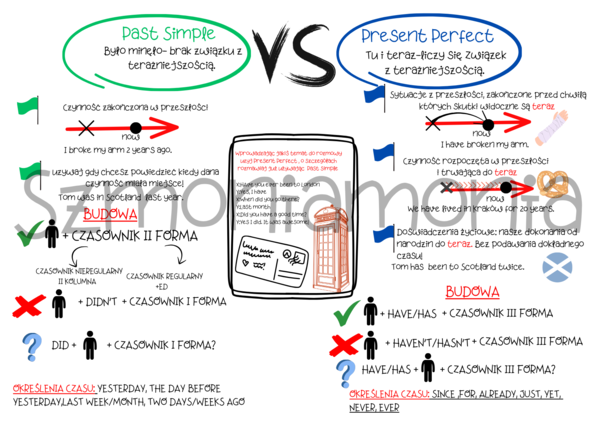 Past Simple
Było minęło- brak związku z
teraźniejszością.
VS
Present Perfect
Tu i teraz-liczy się związek
z teraźniejszością.
Czynność zakończona w przeszłości
now
I broke my arm 2 years ago.
używaj gdy chcesz powiedzieć kiedy dana
czynność miała miejsce!
Tom was in Scotland last year.
BUDOWA
+ CZASOWNIK II FORMA
CZASOWNIK NIEREGULARNY
II KOLUMNA
CZASOWNIK REGULARNY
+ED
+ DIDN'T + CZASOWNIK I FORMA
? DID + + CZASOWNIK I FORMA?
OKREŚLENIA CZASU: YESTERDAY, THE DAY BEFORE
YESTERDAY,LAST WEEK/MONTH, TWO DAYS/WEEKS AGO
Wprowadzając jakiś temat do rozmowy
użyj Present Perfect, o szczegółach
rozmawiaj już używając Past Simple
x:Have you ever been to London
y:Yes, I have
x:When did you go there?
y:Last month.
x:Did you have a good time?
y:Yes I did. It was awesome!
sytuacje z przeszłości, zakończone przed chwilą
których skutki widoczne są teraz
now
I have broken my arm.
Czynność rozpoczęta w przeszłości
i trwająca do teraz
now
We have lived in Kraków for 20 years.
Doświadczenia życiowe: nasze dokonania od
narodzin do teraz. Bez podawania dokładnego
czasu!
Tom has been to Scotland twice.
BUDOWA
+ HAVE/HAS + CZASOWNIK III FORMA
+ HAVEN'T/HASN'T + CZASOWNIK III FORMA
? HAVE/HAS + + CZASOWNIK III FORMA?
OKREŚLENIA CZASU: SINCE ,FOR, ALREADY, JUST, YET,
NEVER, EVER